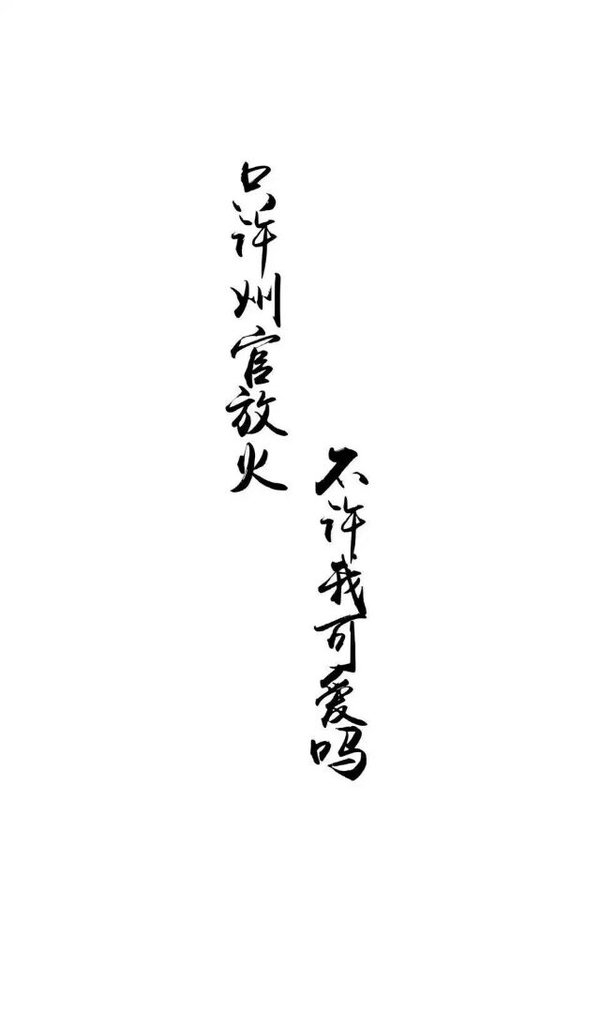 只许州官放火
不许我可爱吗